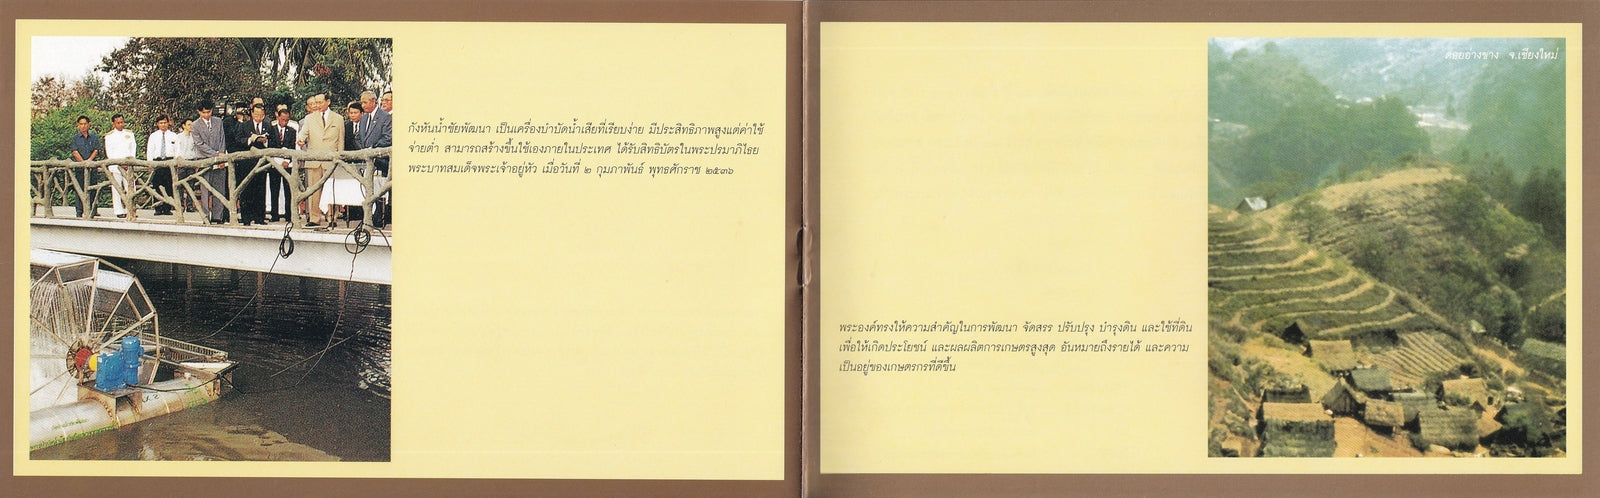 กังหันน้ำชัยพัฒนา เป็นเครื่องบำบัดน้ำเสียที่เรียบง่าย มีประสิทธิภาพสูงแต่ค่าใช้
จ่ายต่ำ สามารถสร้างขึ้นใช้เองภายในประเทศ ได้รับสิทธิบัตรในพระปรมาภิไธย
พระบาทสมเด็จพระเจ้าอยู่หัว เมื่อวันที่ ๒ กุมภาพันธ์ พุทธศักราช ๒๕๓๖
ดอยอ่างขาง จ.เชียงใหม่
พระองค์ทรงให้ความสำคัญในการพัฒนา จัดสรร ปรับปรุง บำรุงดิน และใช้ที่ดิน
เพื่อให้เกิดประโยชน์ และผลผลิตการเกษตรสูงสุด อันหมายถึงรายได้ และความ
เป็นอยู่ของเกษตรกรที่ดีขึ้น